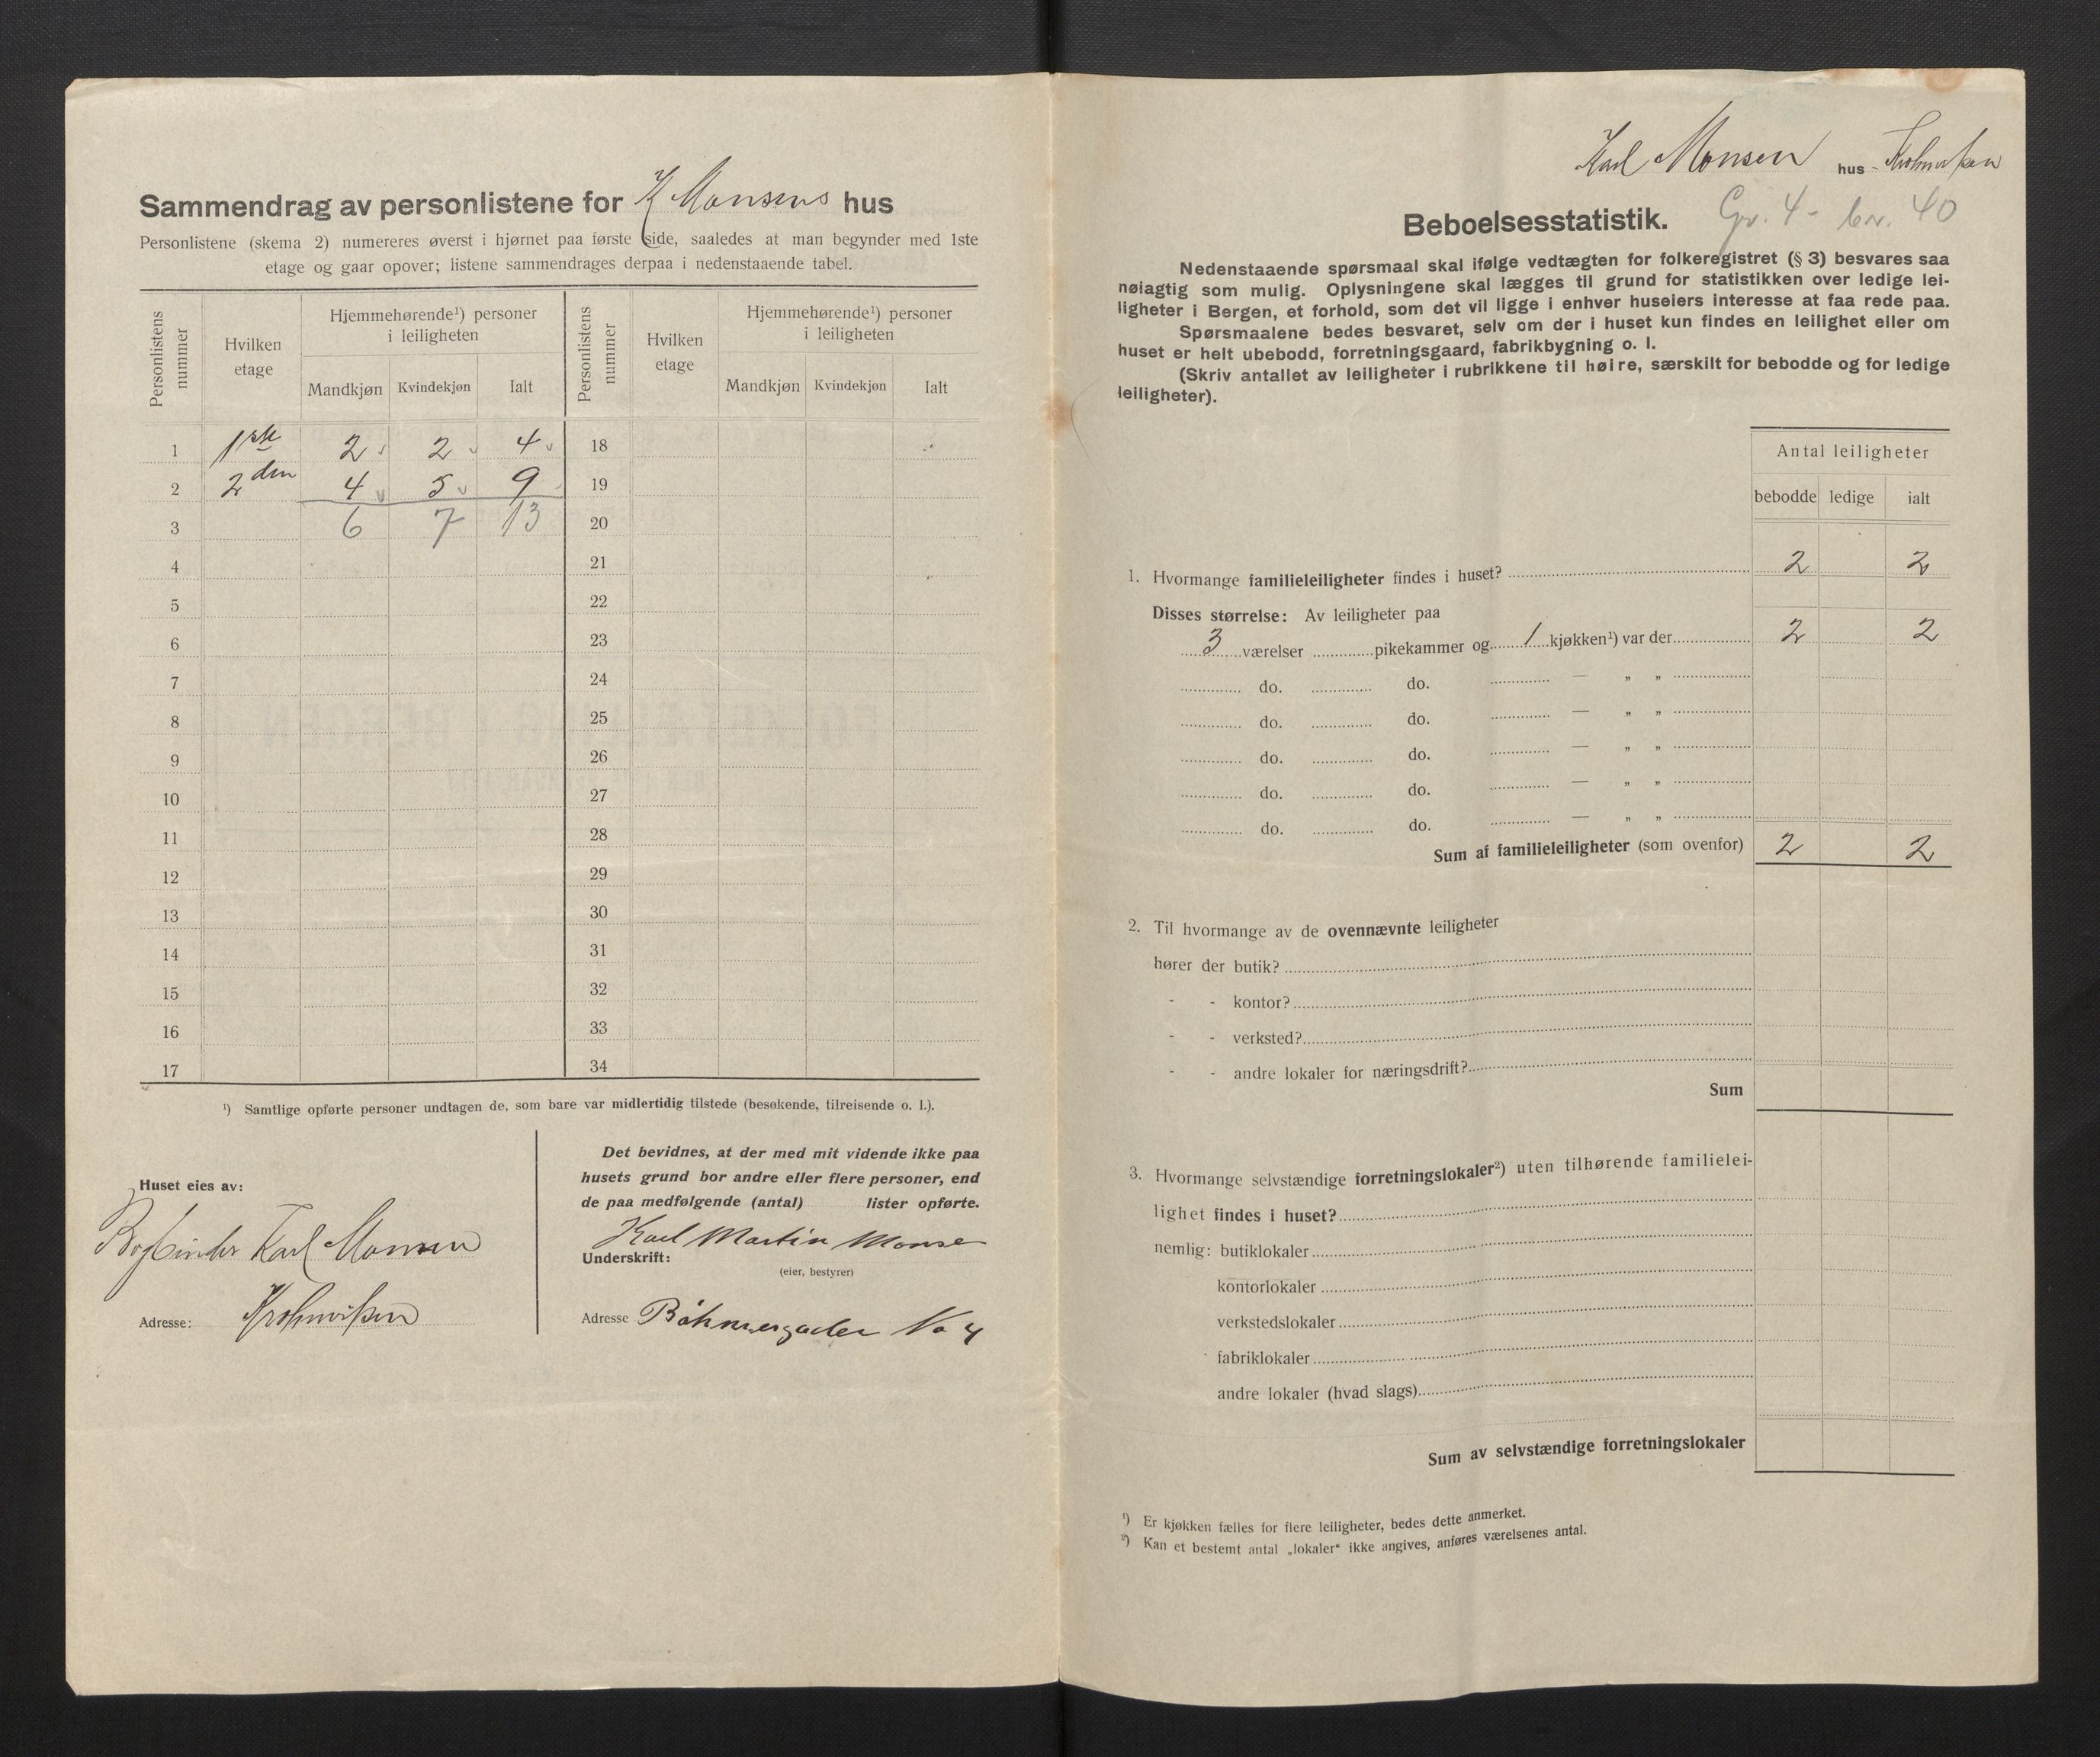 Sammendrag av personlistene for K Monsens hus
Personlistene (skema 2) numereres øverst i hjørnet paa første side, saaledes at man begynder med 1ste
etage og gaar opover; listene sammendrages derpaa i nedenstaaende tabel.
Personlistens nummer
Hvilken etage
Hjemmehørende¹) personer i leiligheten
Mandkjøn Kvindekjøn Ialt
Personlistens nummer
Hvilken etage
Hjemmehørende¹) personer i leiligheten
Mandkjøn Kvindekjøn Ialt
1 1ste 2 2 4 18
2 2den 4 5 9 19
3 6 7 13 20
4 21
5 22
6 23
7 24
8 25
9 26
10 27
11 28
12 29
13 30
14 31
15 32
16 33
17 34
¹) Samtlige opførte personer undtagen de, som bare var midlertidig tilstede (besøkende, tilreisende o. l.).
Huset eies av:
Bogbinder Karl Monsen
Adresse: Krohnviken
Det bevidnes, at der med mit vidende ikke paa
husets grund bor andre eller flere personer, end
de paa medfølgende (antal) lister opførte.
Karl Martin Monse
Underskrift:
(eier, bestyrer)
Adresse Böhmergaden No 4
Karl Monsen hus Krohnviken
Beboelsesstatistik. Gr. 4 - br. 40
Nedenstaaende spørsmaal skal ifølge vedtægten for folkeregistret (§ 3) besvares saa
nøiagtig som mulig. Oplysningene skal lægges til grund for statistikken over ledige lei-
ligheter i Bergen, et forhold, som det vil ligge i enhver huseiers interesse at faa rede paa.
Spørsmaalene bedes besvaret, selv om der i huset kun findes en leilighet eller om
huset er helt ubebodd, forretningsgaard, fabrikbygning o. l.
(Skriv antallet av leiligheter i rubrikkene til høire, særskilt for bebodde og for ledige
leiligheter).
Antal leiligheter
bebodde ledige ialt
1. Hvormange familieleiligheter findes i huset? 2 2
Disses størrelse: Av leiligheter paa
3 værelser pikekammer og 1 kjøkken¹) var der 2 2
do. do. — „ „
do. do. — „ „
do. do. — „ „
do. do. — „ „
do. do. — „ „
Sum af familieleiligheter (som ovenfor) 2 2
2. Til hvormange av de ovennævnte leiligheter
hører der butik?
- - kontor?
- - verksted?
- - andre lokaler for næringsdrift?
Sum
3. Hvormange selvstændige forretningslokaler²) uten tilhørende familielei-
lighet findes i huset?
nemlig: butiklokaler
kontorlokaler
verkstedslokaler
fabriklokaler
andre lokaler (hvad slags)
Sum av selvstændige forretningslokaler
¹) Er kjøkken fælles for flere leiligheter, bedes dette anmerket.
²) Kan et bestemt antal „lokaler“ ikke angives, anføres værelsenes antal.